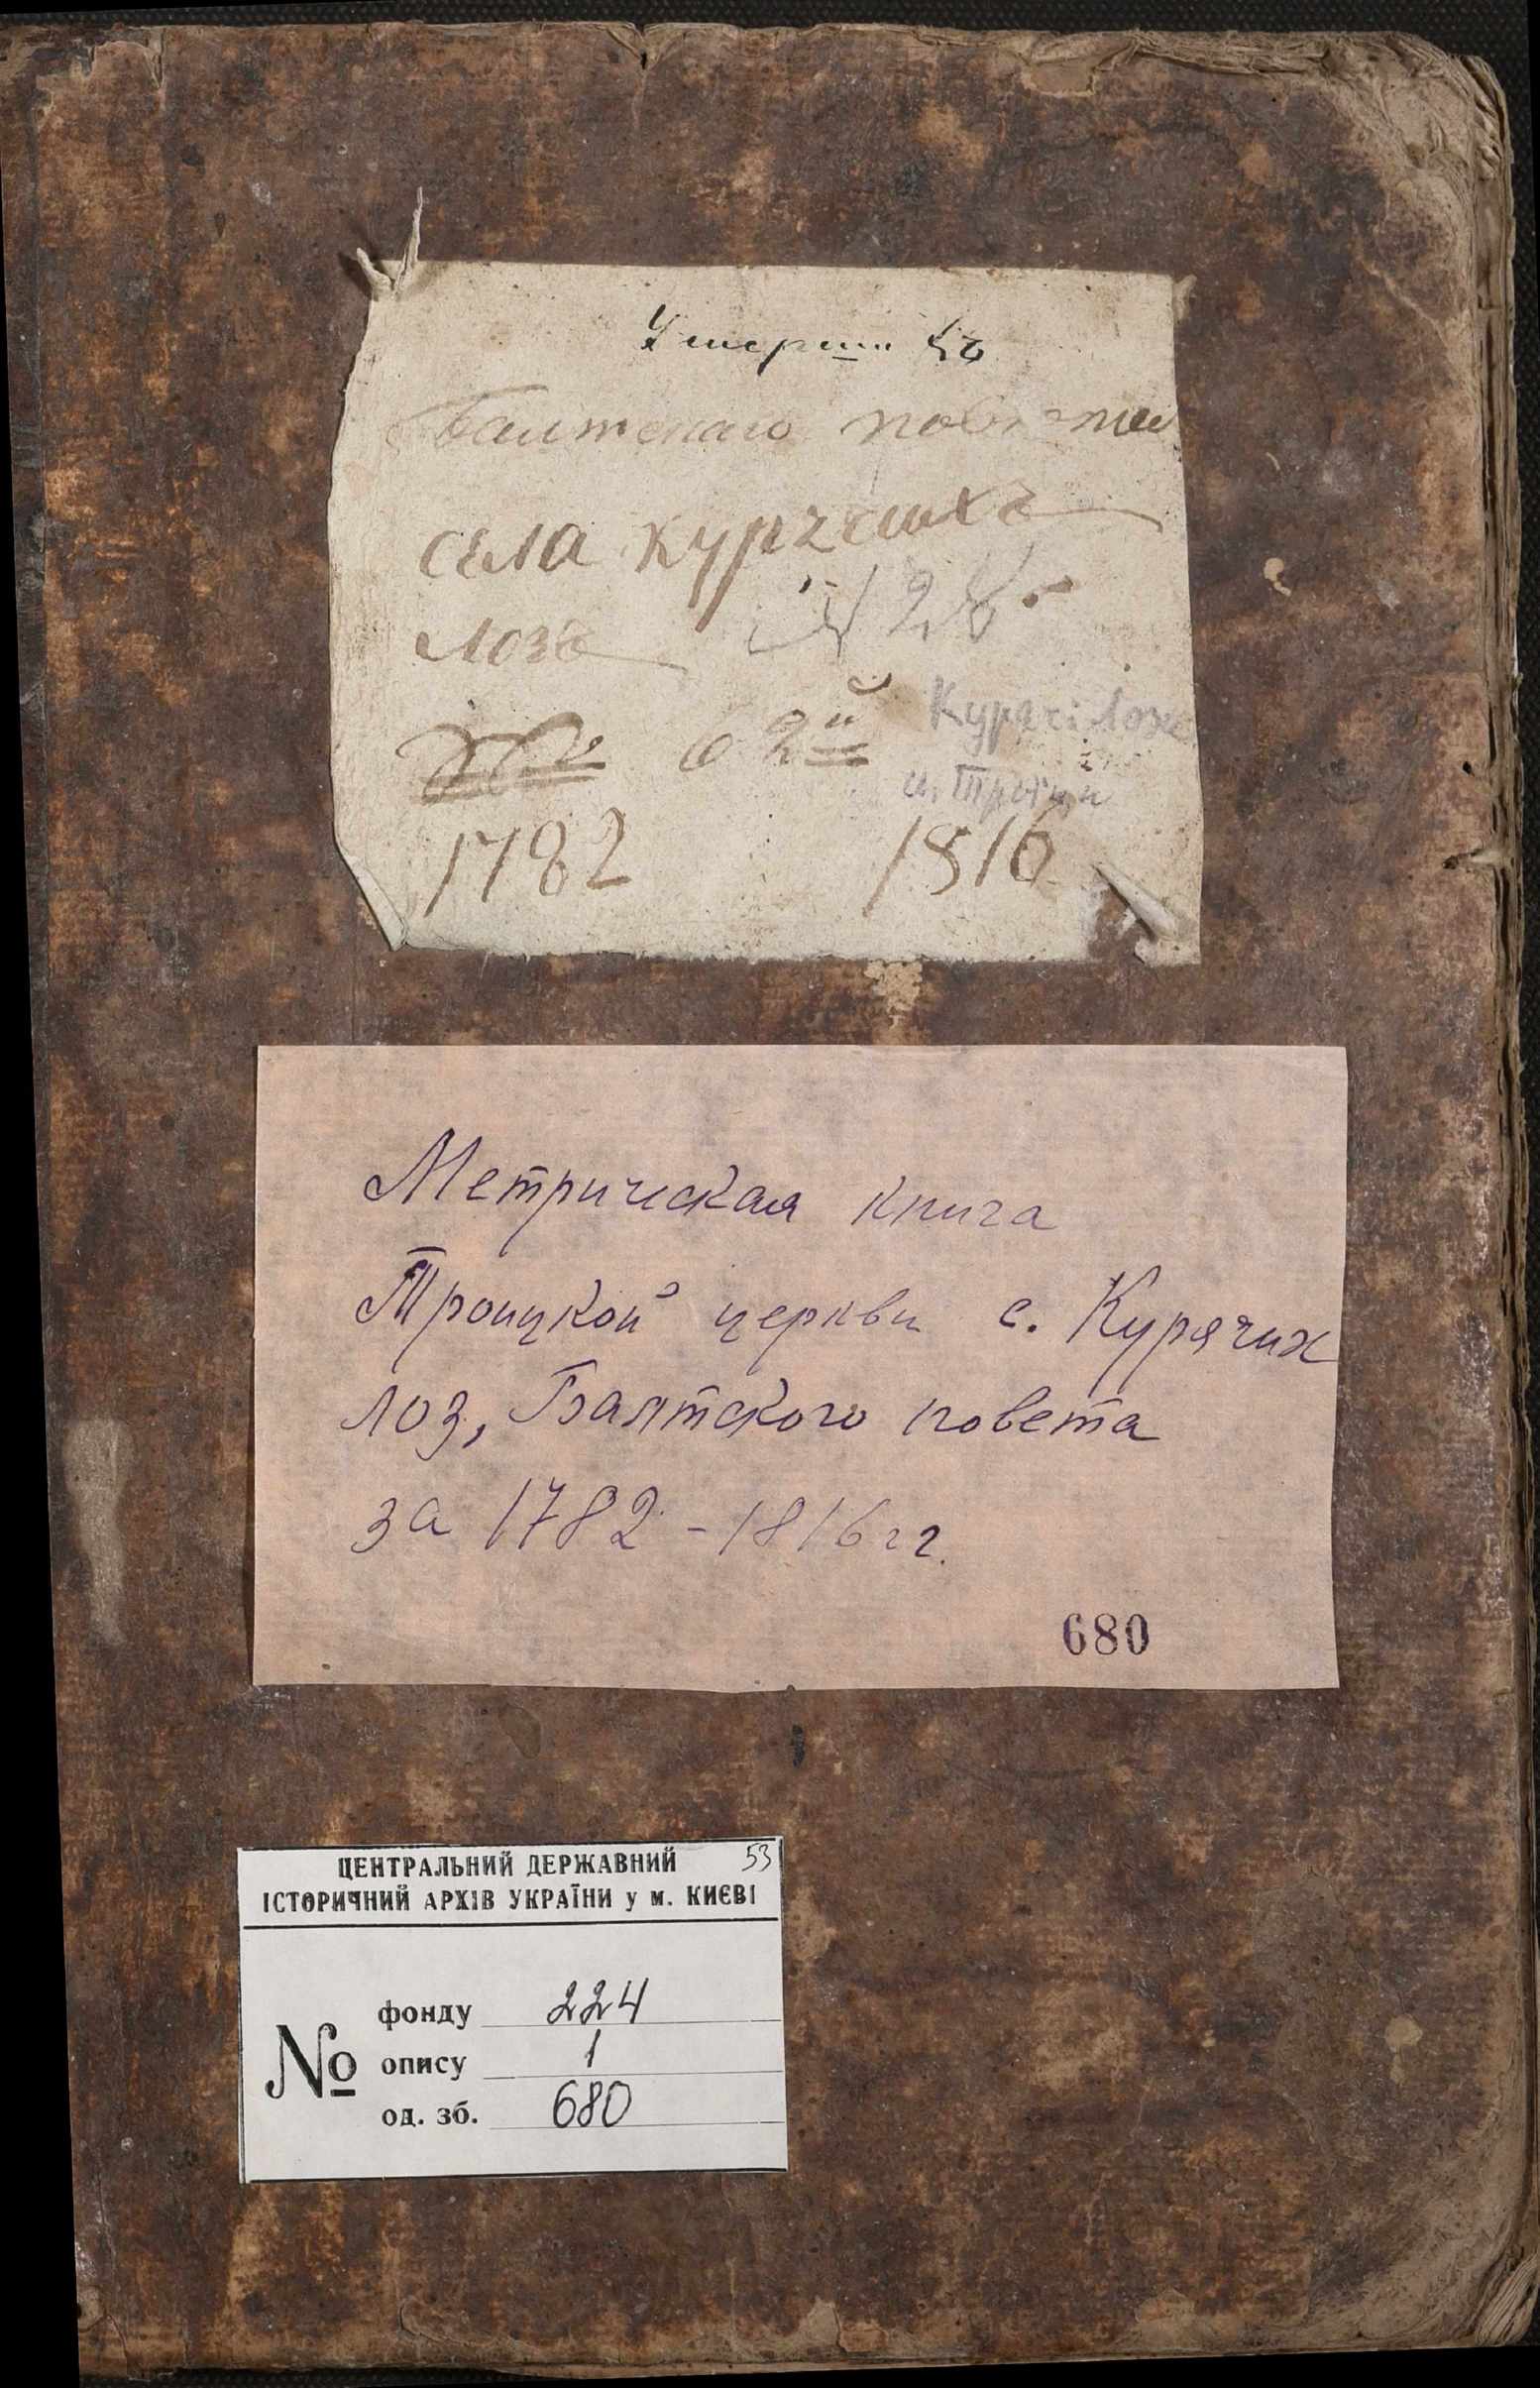 Умерши
Балтскаго повета
села Курячихъ
Лозъ № 28.
62й Курячі Лози
ц. Тройци
1782 1816
Метрическая книга
Троицкой церкви с. Курячих
лоз, Балтского повета
за 1782-1816 гг.
680
ЦЕНТРАЛЬНИЙ ДЕРЖАВНИЙ 53
ІСТОРИЧНИЙ АРХІВ УКРАЇНИ у м. КИЄВІ
№
фонду 224
опису 1
од. зб. 680